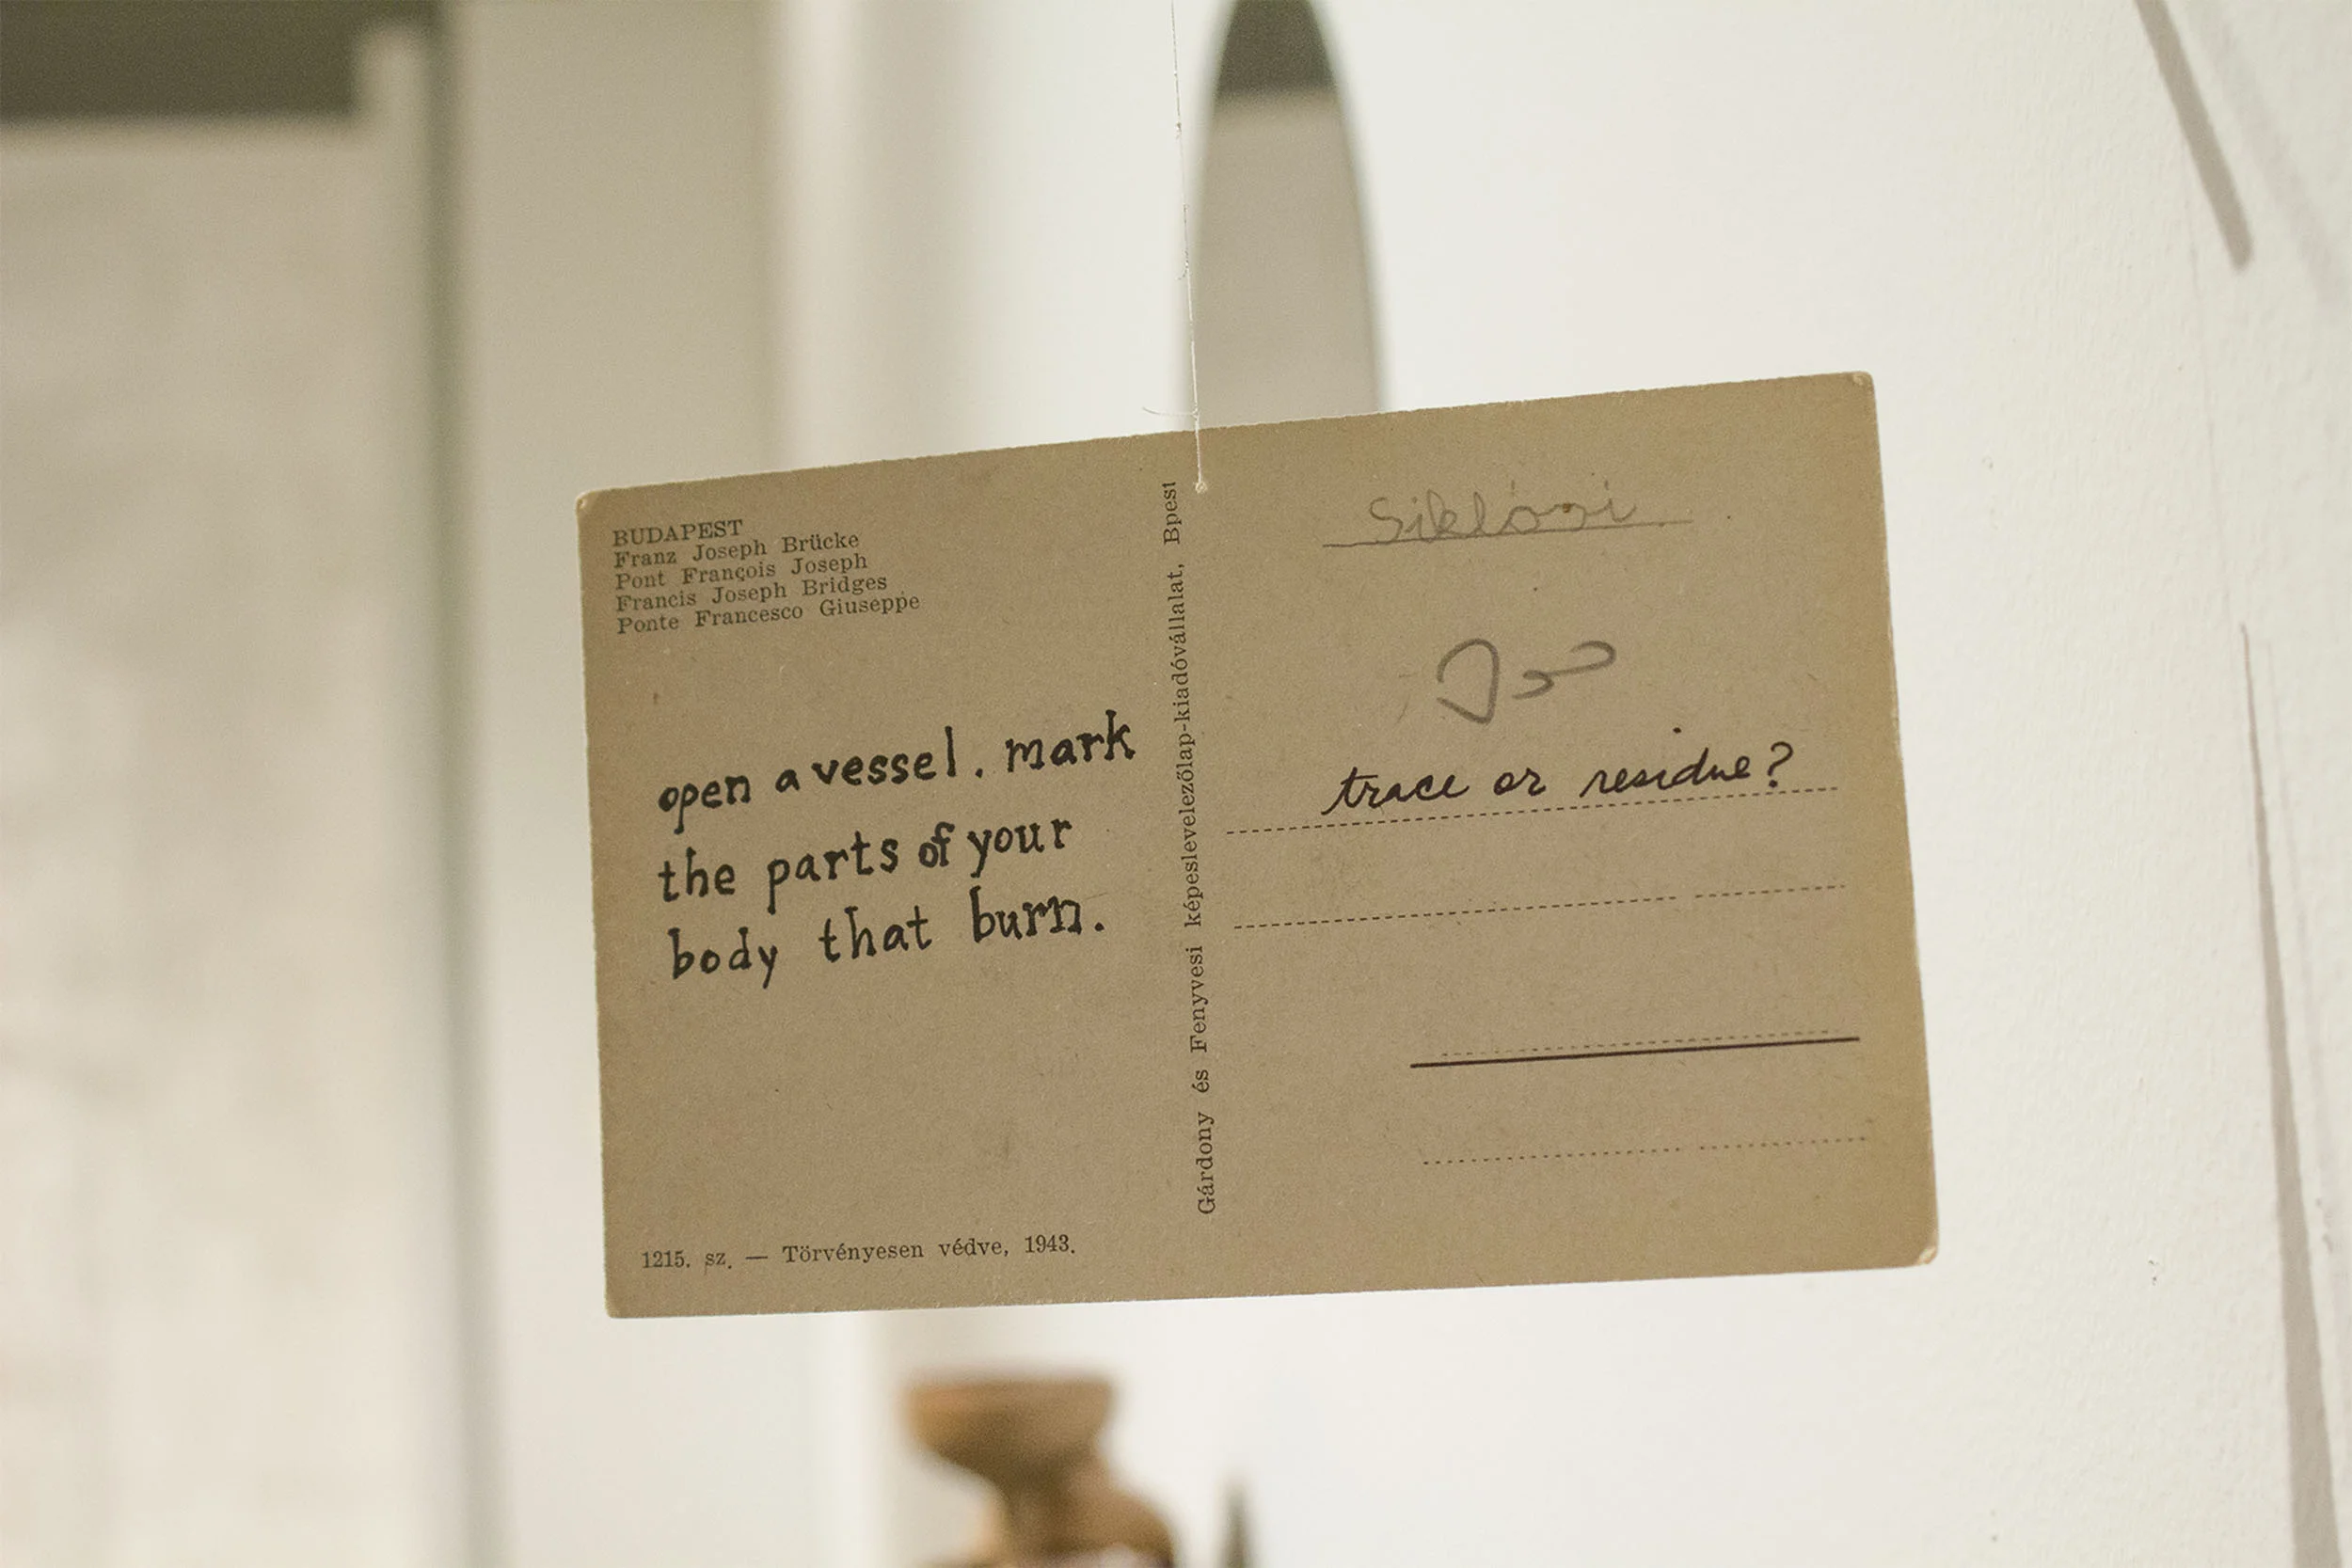 BUDAPEST
Franz Joseph Brücke
Pont François Joseph
Francis Joseph Bridges
Ponte Francesco Giuseppe
open a vessel. mark
the parts of your
body that burn.
1215. sz. — Törvényesen védve, 1943.
Gárdony és Fenyvesi képeslevelezőlap-kiadóvállalat, Bpest
Siklósi
trace or residue?